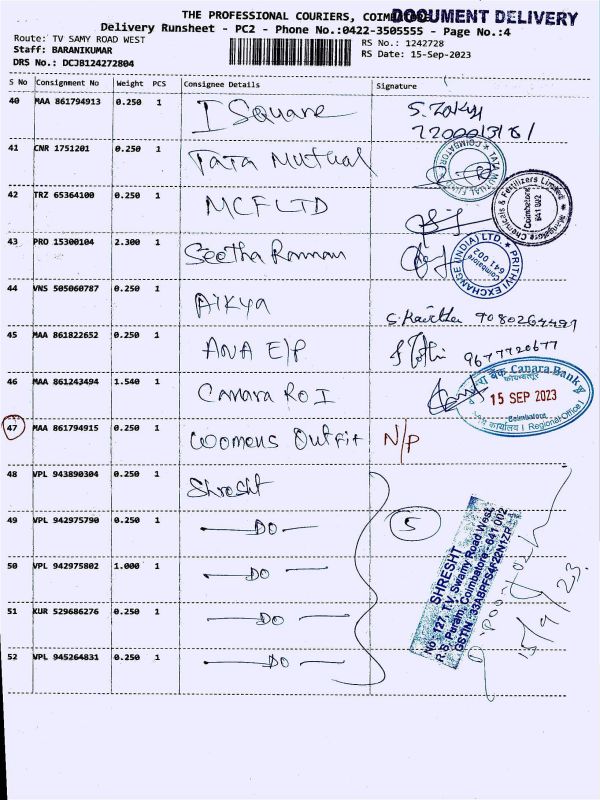 THE PROFESSIONAL COURIERS, COIMBATORE
DOCUMENT DELIVERY
Delivery Runsheet - PC2 - Phone No.:0422-3505555 - Page No.:4
Route: TV SAMY ROAD WEST
RS No.: 1242728
Staff: BARANIKUMAR
RS Date: 15-Sep-2023
DRS No.: DCJ8124272804
S No Consignment No Weight PCS Consignee Details Signature
40 MAA 861794913 0.250 1 I Square
41 CNR 1751201 0.250 1 Tata Mutual
42 TRZ 65364100 0.250 1 MCFLTD
Mangalore Chemicals & Fertilizers Limited
Coimbatore
641 002
43 PRO 15300104 2.300 1 Seetha Raman
PRITHVI EXCHANGE (INDIA) LTD.
Coimbatore
641 002
44 VNS 505060787 0.250 1 Aikya
45 MAA 861822652 0.250 1 ANA E/P 9677720677
46 MAA 861243494 1.540 1 Canara RO I
Canara Bank
15 SEP 2023
Coimbatore
Regional Office I
47 MAA 861794915 0.250 1 Womens Outfit N/P
48 VPL 943890304 0.250 1 Shresht
49 VPL 942975790 0.250 1 DO 5
50 VPL 942975802 1.000 1 DO
51 KUR 529686276 0.250 1 DO
52 VPL 945264831 0.250 1 DO
SHRESHT
No 127, TV, Swamy Road West,
R.S. Puram, Coimbatore- 641 002
15/9/23.